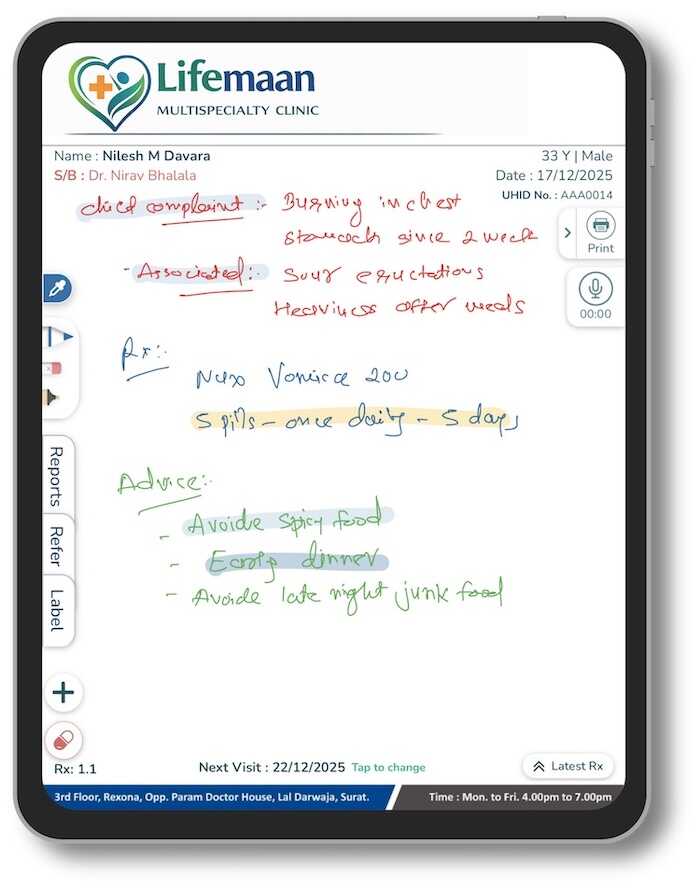 Lifemaan
MULTISPECIALTY CLINIC
Name : Nilesh M Davara
33 Y | Male
S/B : Dr. Nirav Bhalala
Date : 17/12/2025
UHID No. : AAA0014
chief complaint :- Burning in chest
Stomach since 2 week
Print
- Associated :- Sour eructations
Heaviness after meals
00:00
Rx :-
Nux Vomica 200
5 pills - once daily - 5 days
Reports
Refer
Label
Advice :-
- Avoide spicy food
- Early dinner
- Avoide late night junk food
Rx: 1.1
Next Visit : 22/12/2025 Tap to change
Latest Rx
3rd Floor, Rexona, Opp. Param Doctor House, Lal Darwaja, Surat.
Time : Mon. to Fri. 4.00pm to 7.00pm